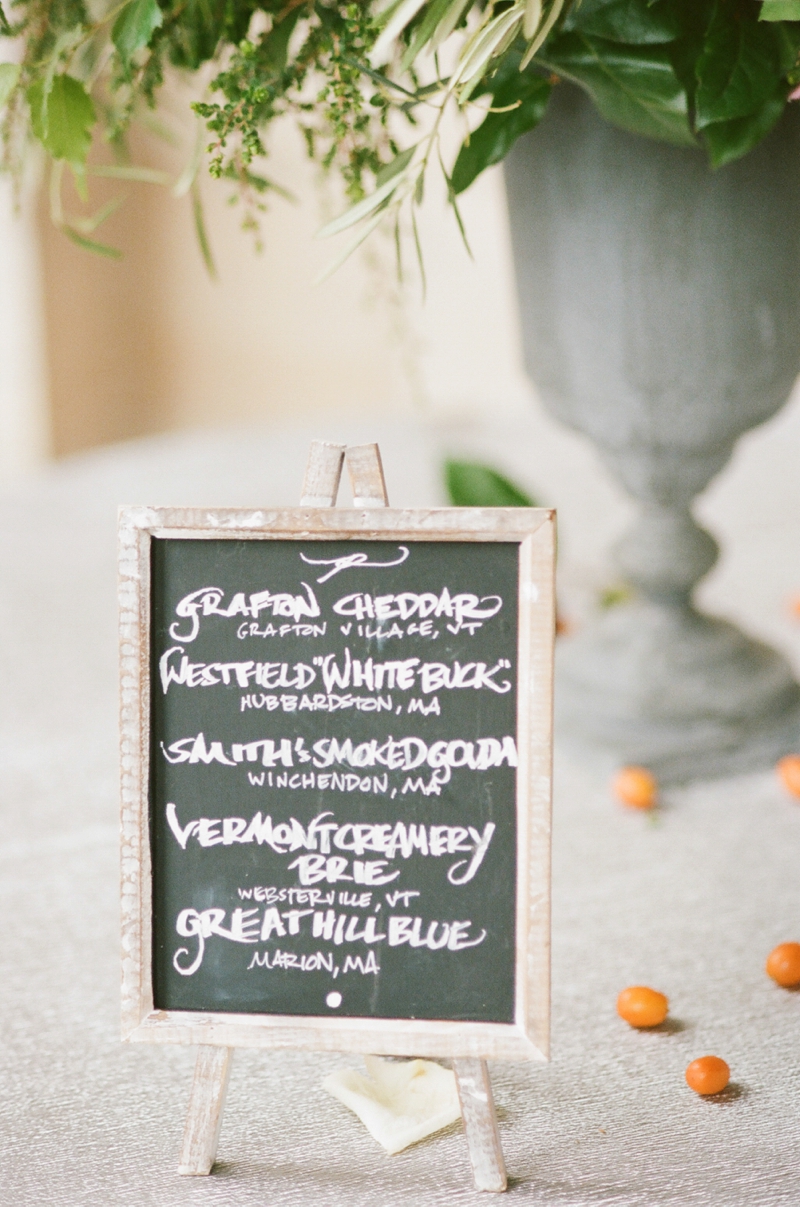 GRAFTON CHEDDAR
GRAFTON VILLAGE, VT
WESTFIELD "WHITE BUCK"
HUBBARDSTON, MA
SMITH'S SMOKED GOUDA
WINCHENDON, MA
VERMONT CREAMERY
BRIE
WEBSTERVILLE, VT
GREAT HILL BLUE
MARION, MA